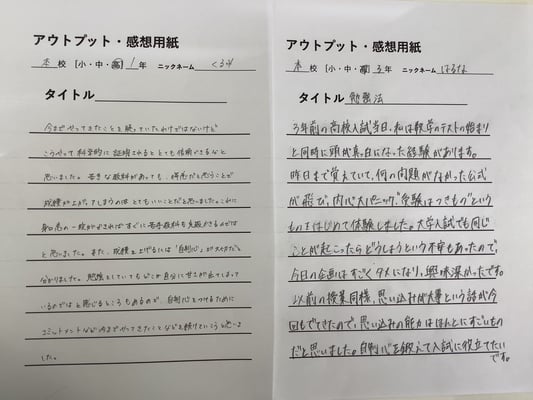 アウトプット・感想用紙
本 校 [小・中・高] 1 年 ニックネーム くるみ
タイトル
今までやってきたことを疑っていたわけではないけど
こうやって科学的に証明されるととても信頼できるなと
思いました。苦手な教科があっても、得意だと思うことで
成績が上がってしまうのはとてもいいことだと思いました。これに
身に
すぐに苦手教科も克服できるのでは
と思いました。また、成績を上げるには「自制心」が大切だと
分かりました。勉強をしていてもどこか自分に甘さが出てしまって
いるのではと感じるところもあるので、自制心をつけるために
コミットメントなど今までやってきたことなどを
思いま
した。
アウトプット・感想用紙
本 校 [小・中・高] 3 年 ニックネーム はるな
タイトル 勉強法
3年前の高校入試当日、私は数学のテストの始まり
と同時に頭が真っ白になった経験があります。
昨日まで覚えていて、何の問題がなかった公式
が飛び、内心大パニック。"受験はつきもの"という
ものをはじめて体験しました。大学入試でも同じ
ことが起こったらどうしようという不安もあったので、
今日の企画はすごくタメになり、興味深かったです。
以前の授業同様、思い込みが大事という話が今
回もでてきたので、思い込みの能力はほんとにすごいもの
だと思いました。自制心を鍛えて入試に役立てたい
です。